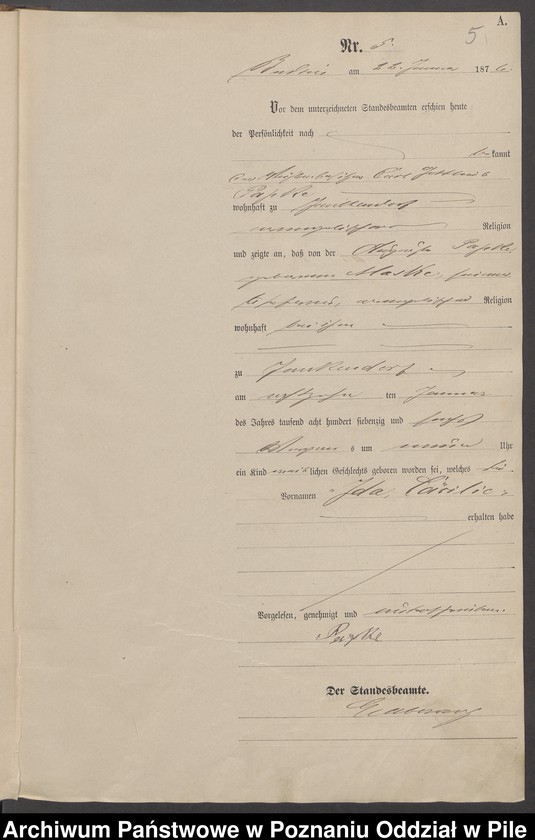 A.
5
Nr. 5.
am 22. Januar 1876.
Vor dem unterzeichneten Standesbeamten erschien heute
der Persönlichkeit nach
bekannt
Carl Gottlieb
Papke
wohnhaft zu
evangelischer Religion
und zeigte an, daß von der Auguste Papke
geborenen Maske, seiner
Ehefrau, evangelischer Religion
wohnhaft bei ihm
zu
am achtzehn ten Januar
des Jahres tausend acht hundert siebenzig und sechs
Morgens um neun Uhr
ein Kind weiblichen Geschlechts geboren worden sei, welches die
Vornamen Ida, Cäcilie
erhalten habe
Vorgelesen, genehmigt und unterschrieben.
Papke
Der Standesbeamte.
Archiwum Państwowe w Poznaniu Oddział w Pile